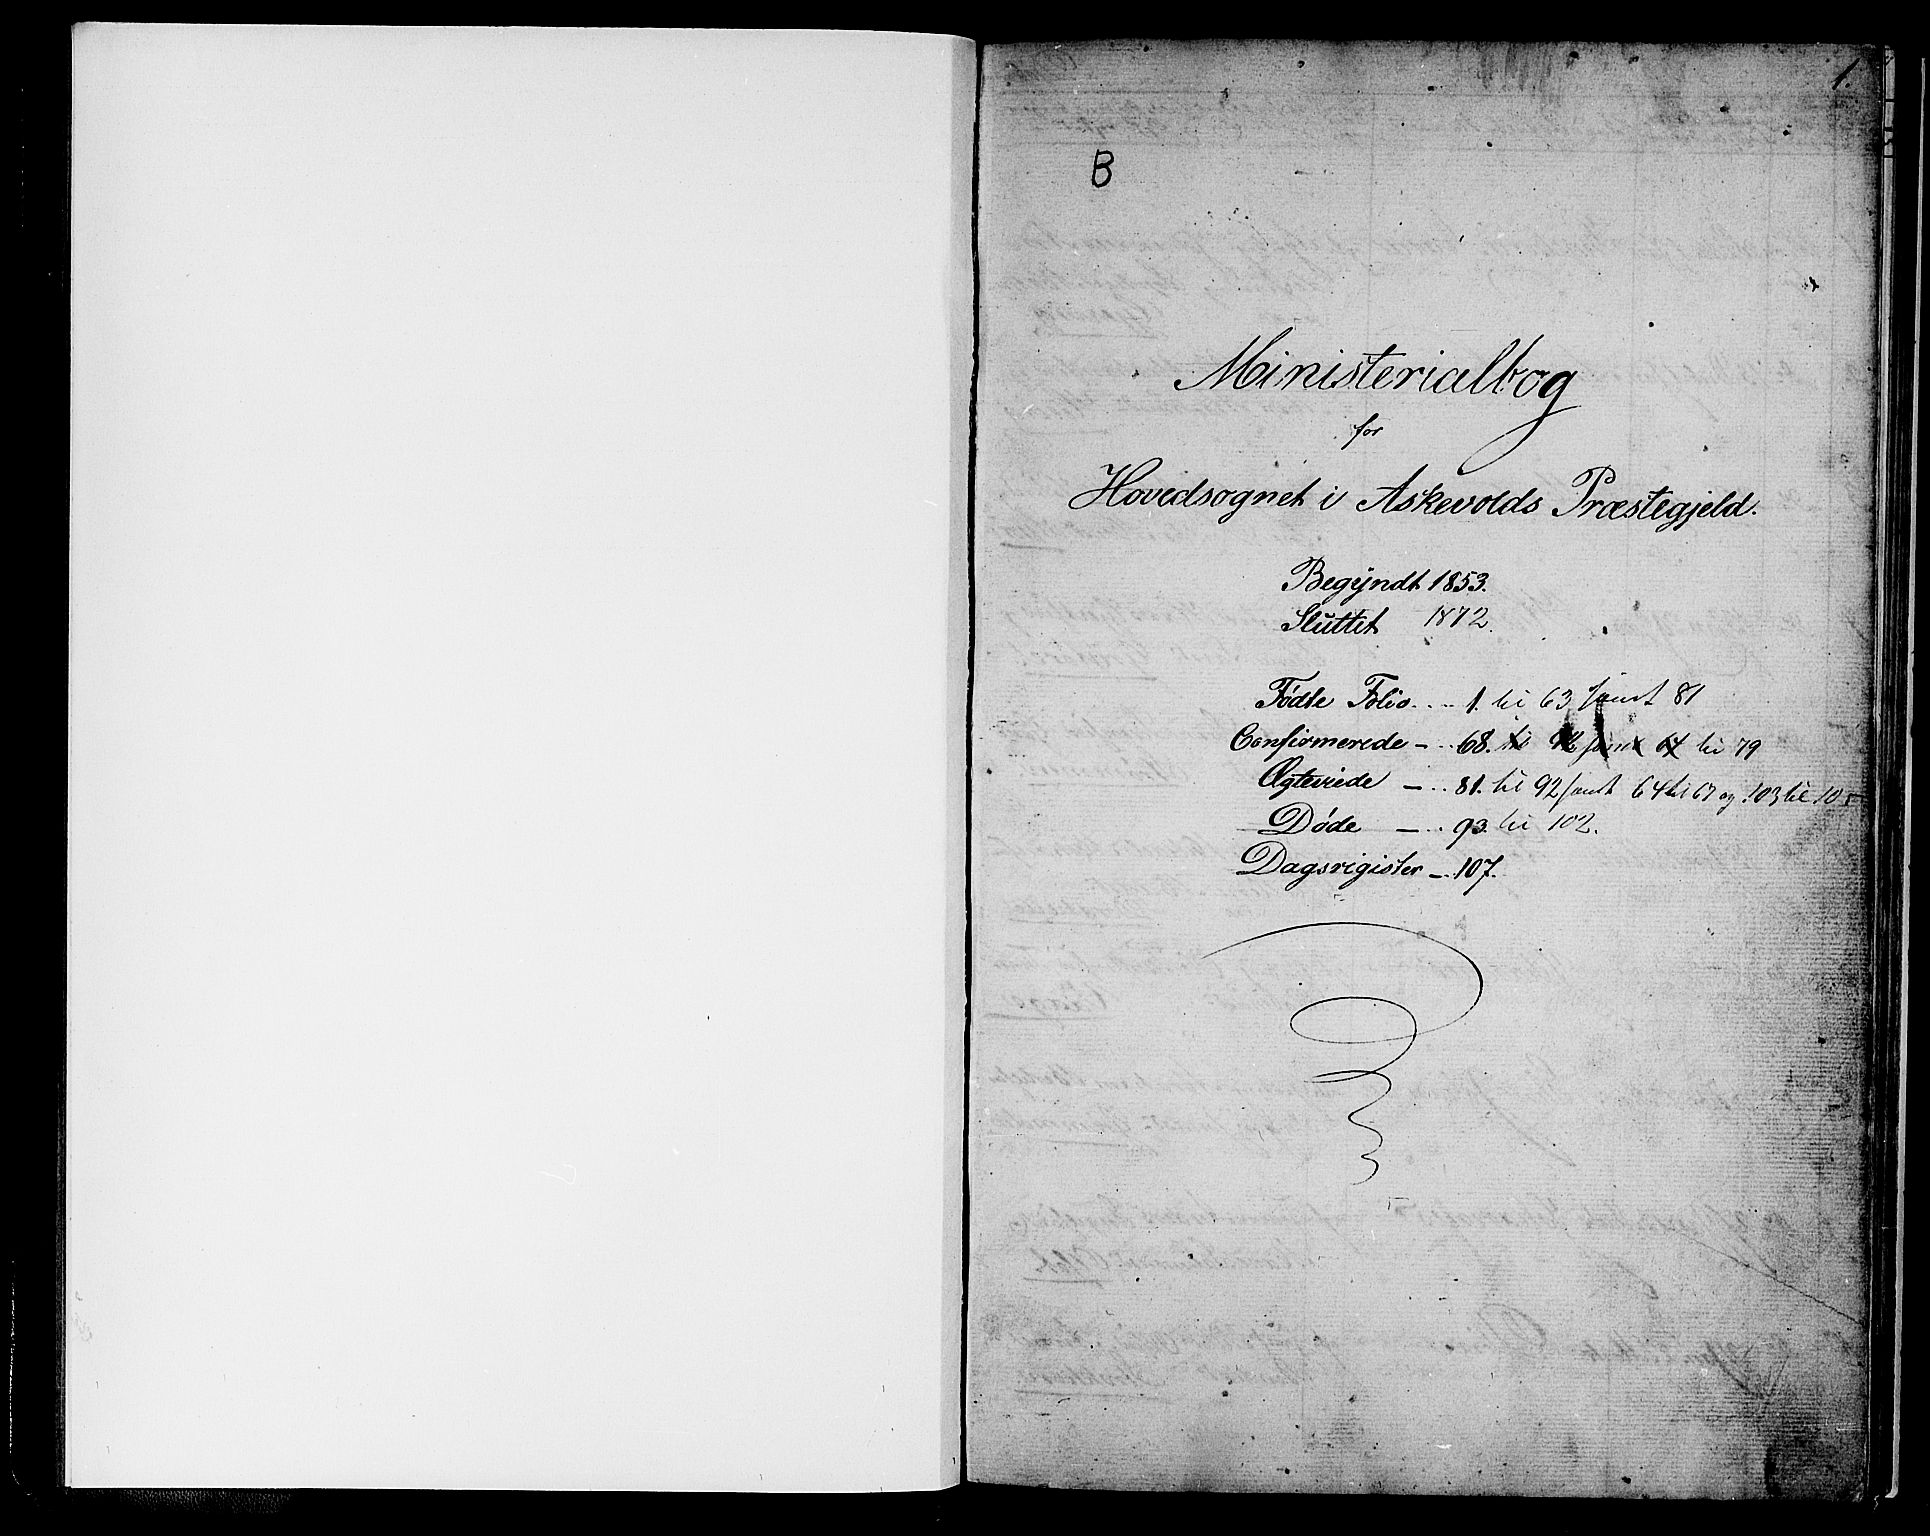 1.
B
Ministerialbog
for
Hovedsognet i Askevolds Præstegjeld.
Begyndt 1853.
Sluttet 1872.
Fødte Folio.... 1. til 63 samt 81
Confirmerede - .. 68. til 92 samt 64 til 79
Ægteviede - .. 81. til 92 samt 64 til 67 og 103 til 105
Døde - .. 93. til 102.
Dagsrigister - .. 107.